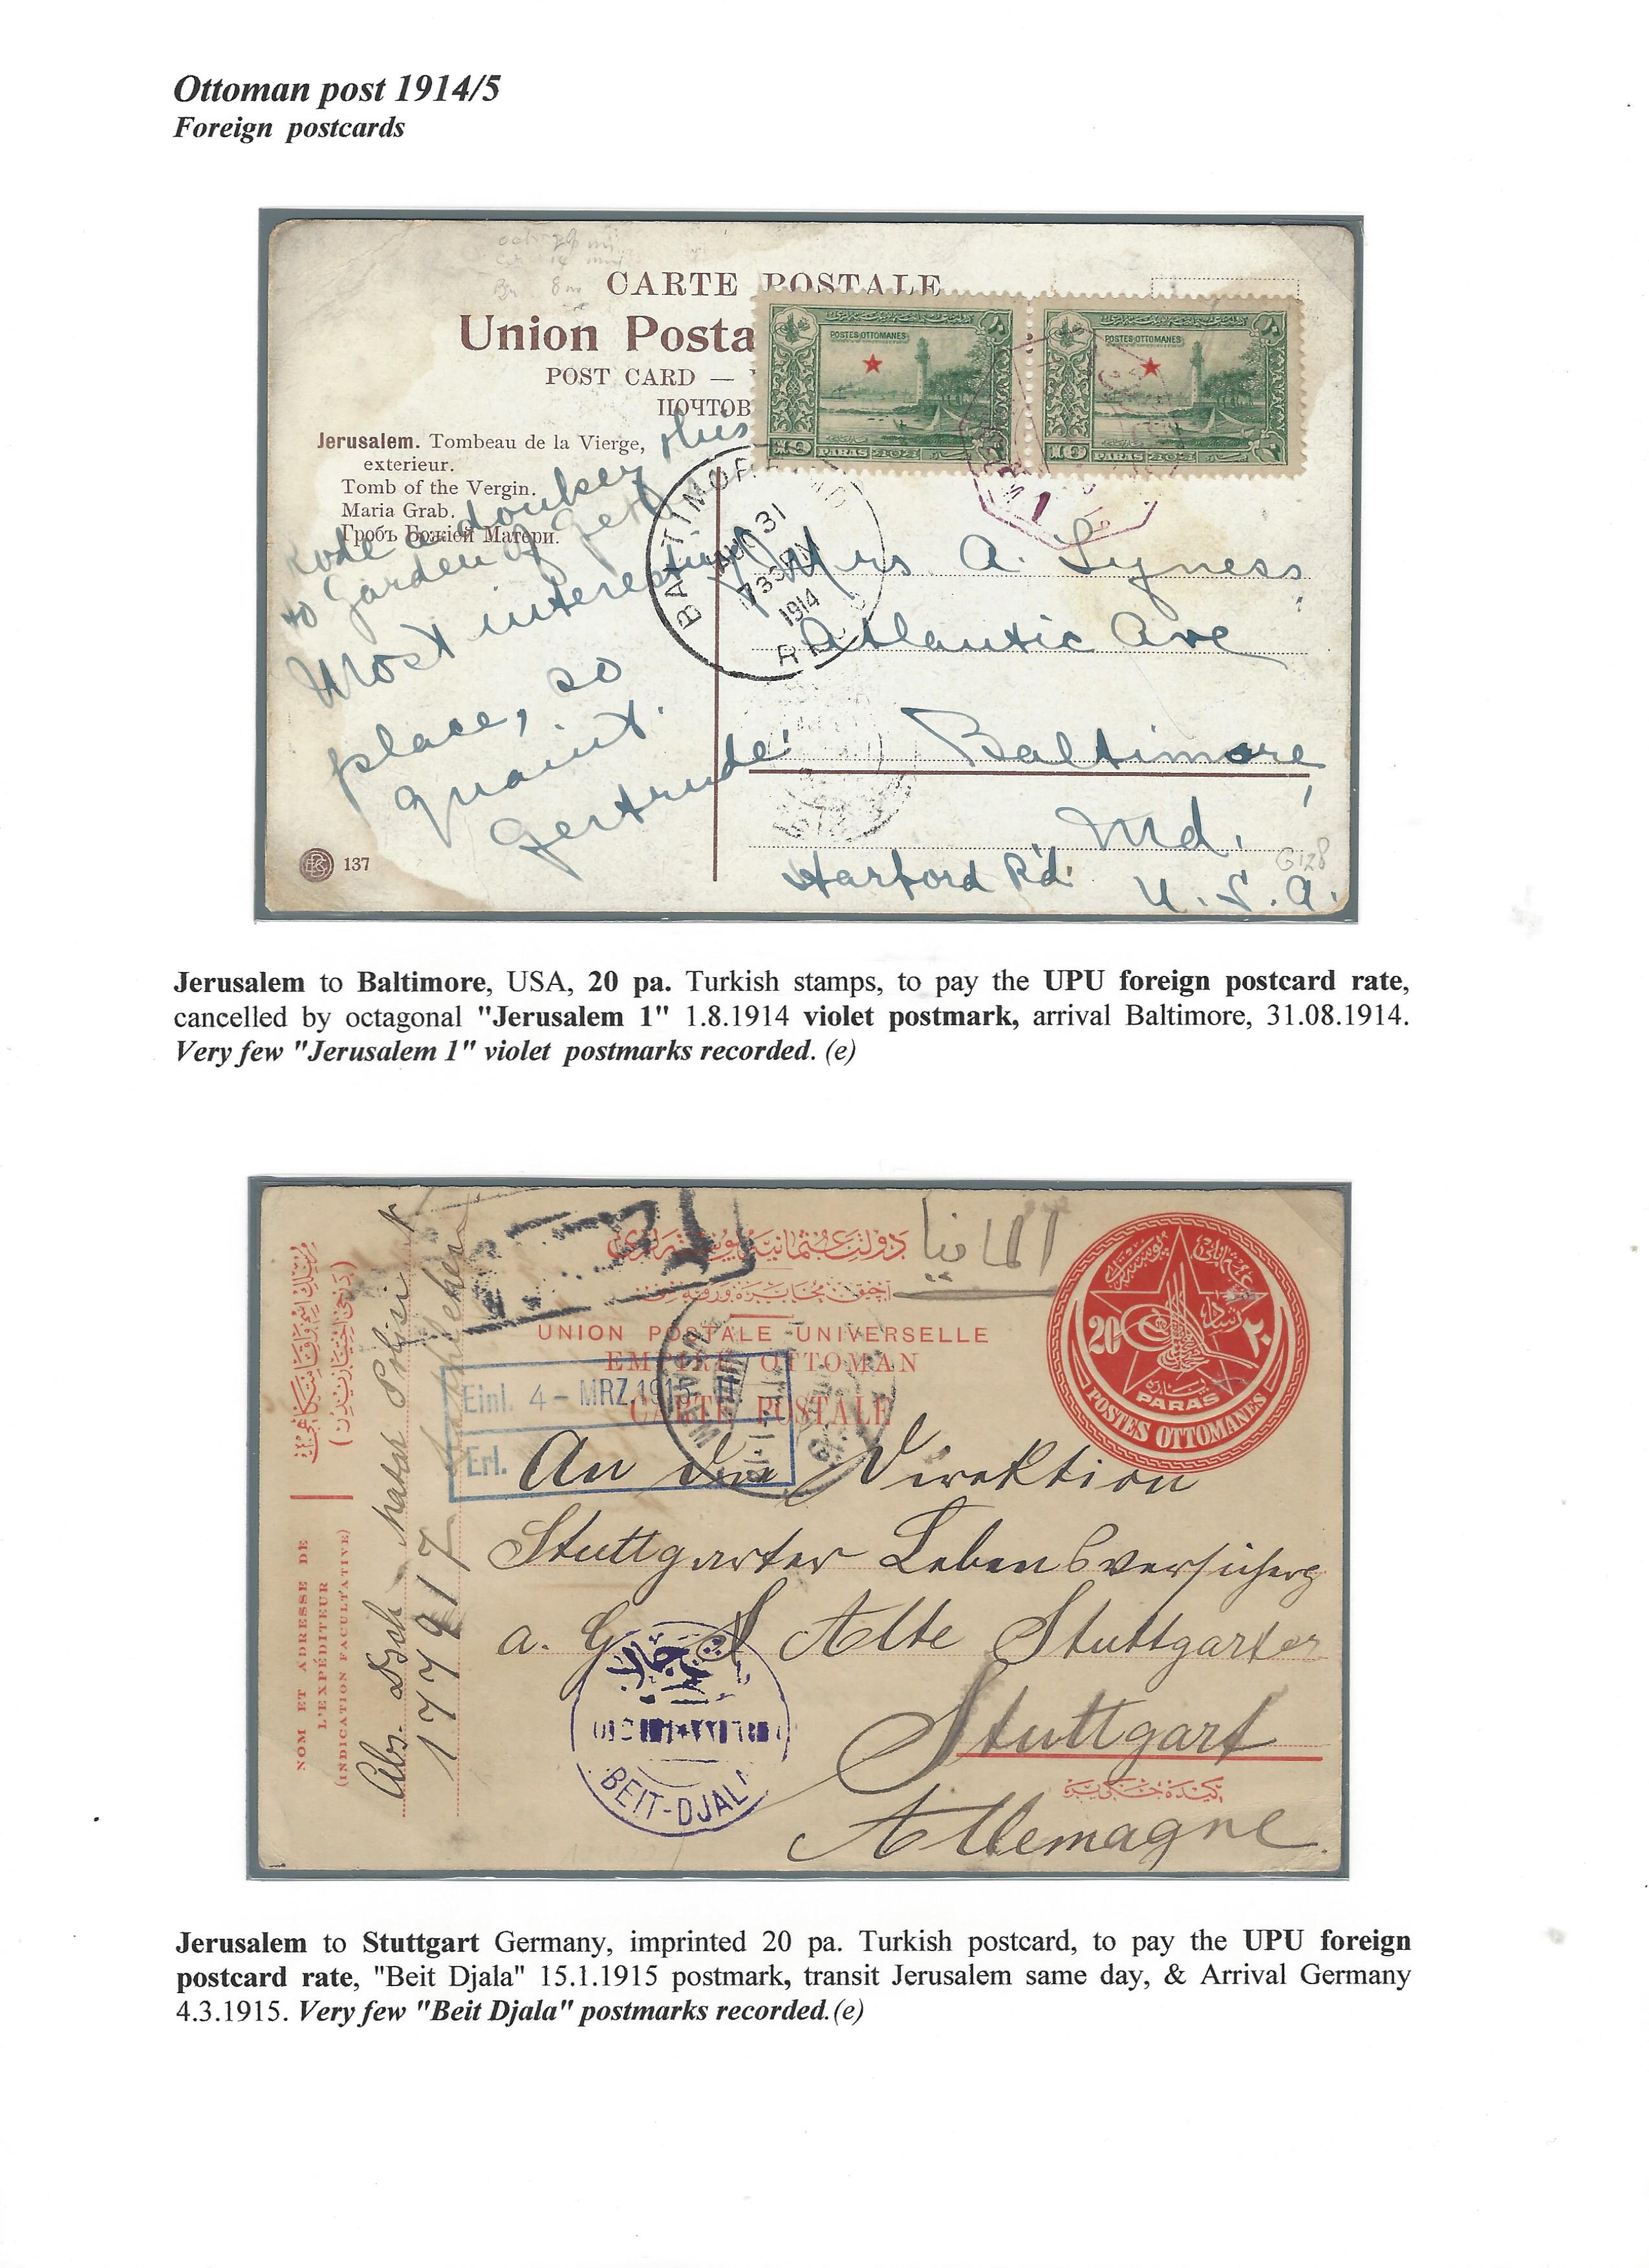 Ottoman post 1914/5
Foreign postcards
CARTE POSTALE
Union Posta
POST CARD —
ПОЧТОВ
POSTES OTTOMANES
POSTES OTTOMANES
10 PARAS
10 PARAS
Jerusalem. Tombeau de la Vierge,
exterieur.
Tomb of the Vergin.
Maria Grab.
Гробъ Божіей Матери.
Rode a donkey this
to Garden of Geth
Most interesting
place, so
quaint.
Gertrude
137
BALTIMORE, MD
AUG 31
730PM
1914
Mrs A. Lyness
Atlantic Ave
Baltimore,
Md.
Harford Rd.
U.S.A.
G128
Jerusalem to Baltimore, USA, 20 pa. Turkish stamps, to pay the UPU foreign postcard rate,
cancelled by octagonal "Jerusalem 1" 1.8.1914 violet postmark, arrival Baltimore, 31.08.1914.
Very few "Jerusalem 1" violet postmarks recorded. (e)
المانيا
UNION POSTALE UNIVERSELLE
EMPIRE OTTOMAN
CARTE POSTALE
20 ٢٠
PARAS
POSTES OTTOMANES
Einl. 4 - MRZ.1915
Erl.
NOM ET ADRESSE DE
L'EXPÉDITEUR
(INDICATION FACULTATIVE)
177917
An die Direktion
Stuttgarter Lebensversicherg
a. G. Alte Stuttgarter
Stuttgart
Allemagne
BEIT-DJALA
Jerusalem to Stuttgart Germany, imprinted 20 pa. Turkish postcard, to pay the UPU foreign
postcard rate, "Beit Djala" 15.1.1915 postmark, transit Jerusalem same day, & Arrival Germany
4.3.1915. Very few "Beit Djala" postmarks recorded.(e)